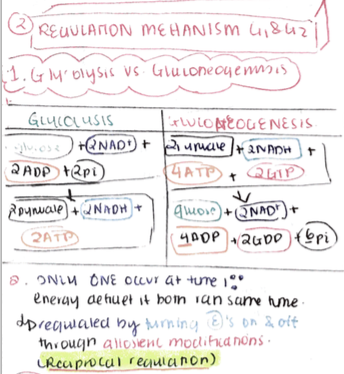 ② REGULATION MECHANISM G1 & G2
1. Glycolysis vs Gluconeogenesis
GLYCOLYSIS
glucose + 2NAD+ +
2ADP + 2Pi
↓
2pyruvate + 2NADH +
2ATP
GLUCONEOGENESIS
2pyruvate + 2NADH +
4ATP + 2GTP
↓
glucose + 2NAD+ +
4ADP + 2GDP + 6Pi
ONLY ONE occur at time !
energy deficit if both ran same time.
↳ regulated by turning Ⓔ's on & off
through allosteric modifications.
(Reciprocal regulation)